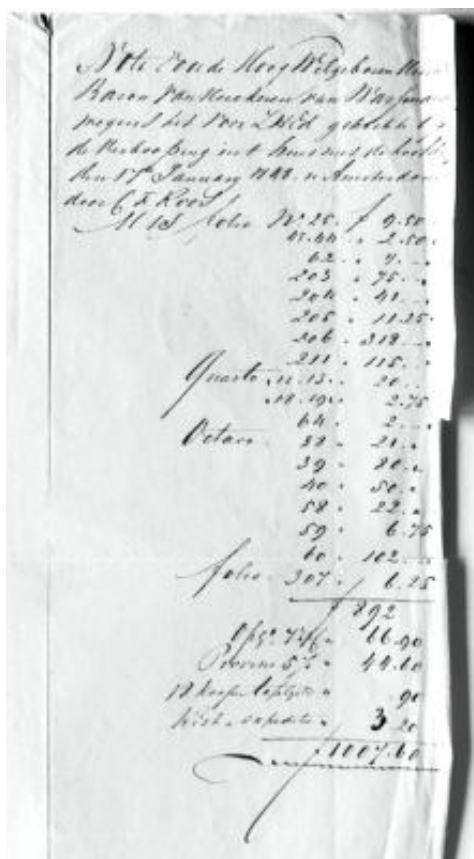 Nota van de Hoog Welgeboren Heer
Baron van Heeckeren van Wassenaer
wegens het voor ZHEd gekochte
de Verkooping in 't huis met de hoofden
den 17e January 1843. te Amsterdam
door C F Roos
MSS folio No 25. f 9.50
43.44 " 2.50
62 " 7.
203 " 75.
204 " 41.
205 " 11.25
206 " 318
211 " 115
Quarto. 12.13. 20
18.19. 2.75
64 . 2
Octavo 38 . 21
39 . 80
40 . 50
58 . 22
59 . 6.75
60 . 102
folio. 307. 6.25
f 892
Opg. 7½ % 66.90
Provisie 5 % 44.60
18 koopen 90
Kist & expeditie 3 20
f 1007.60